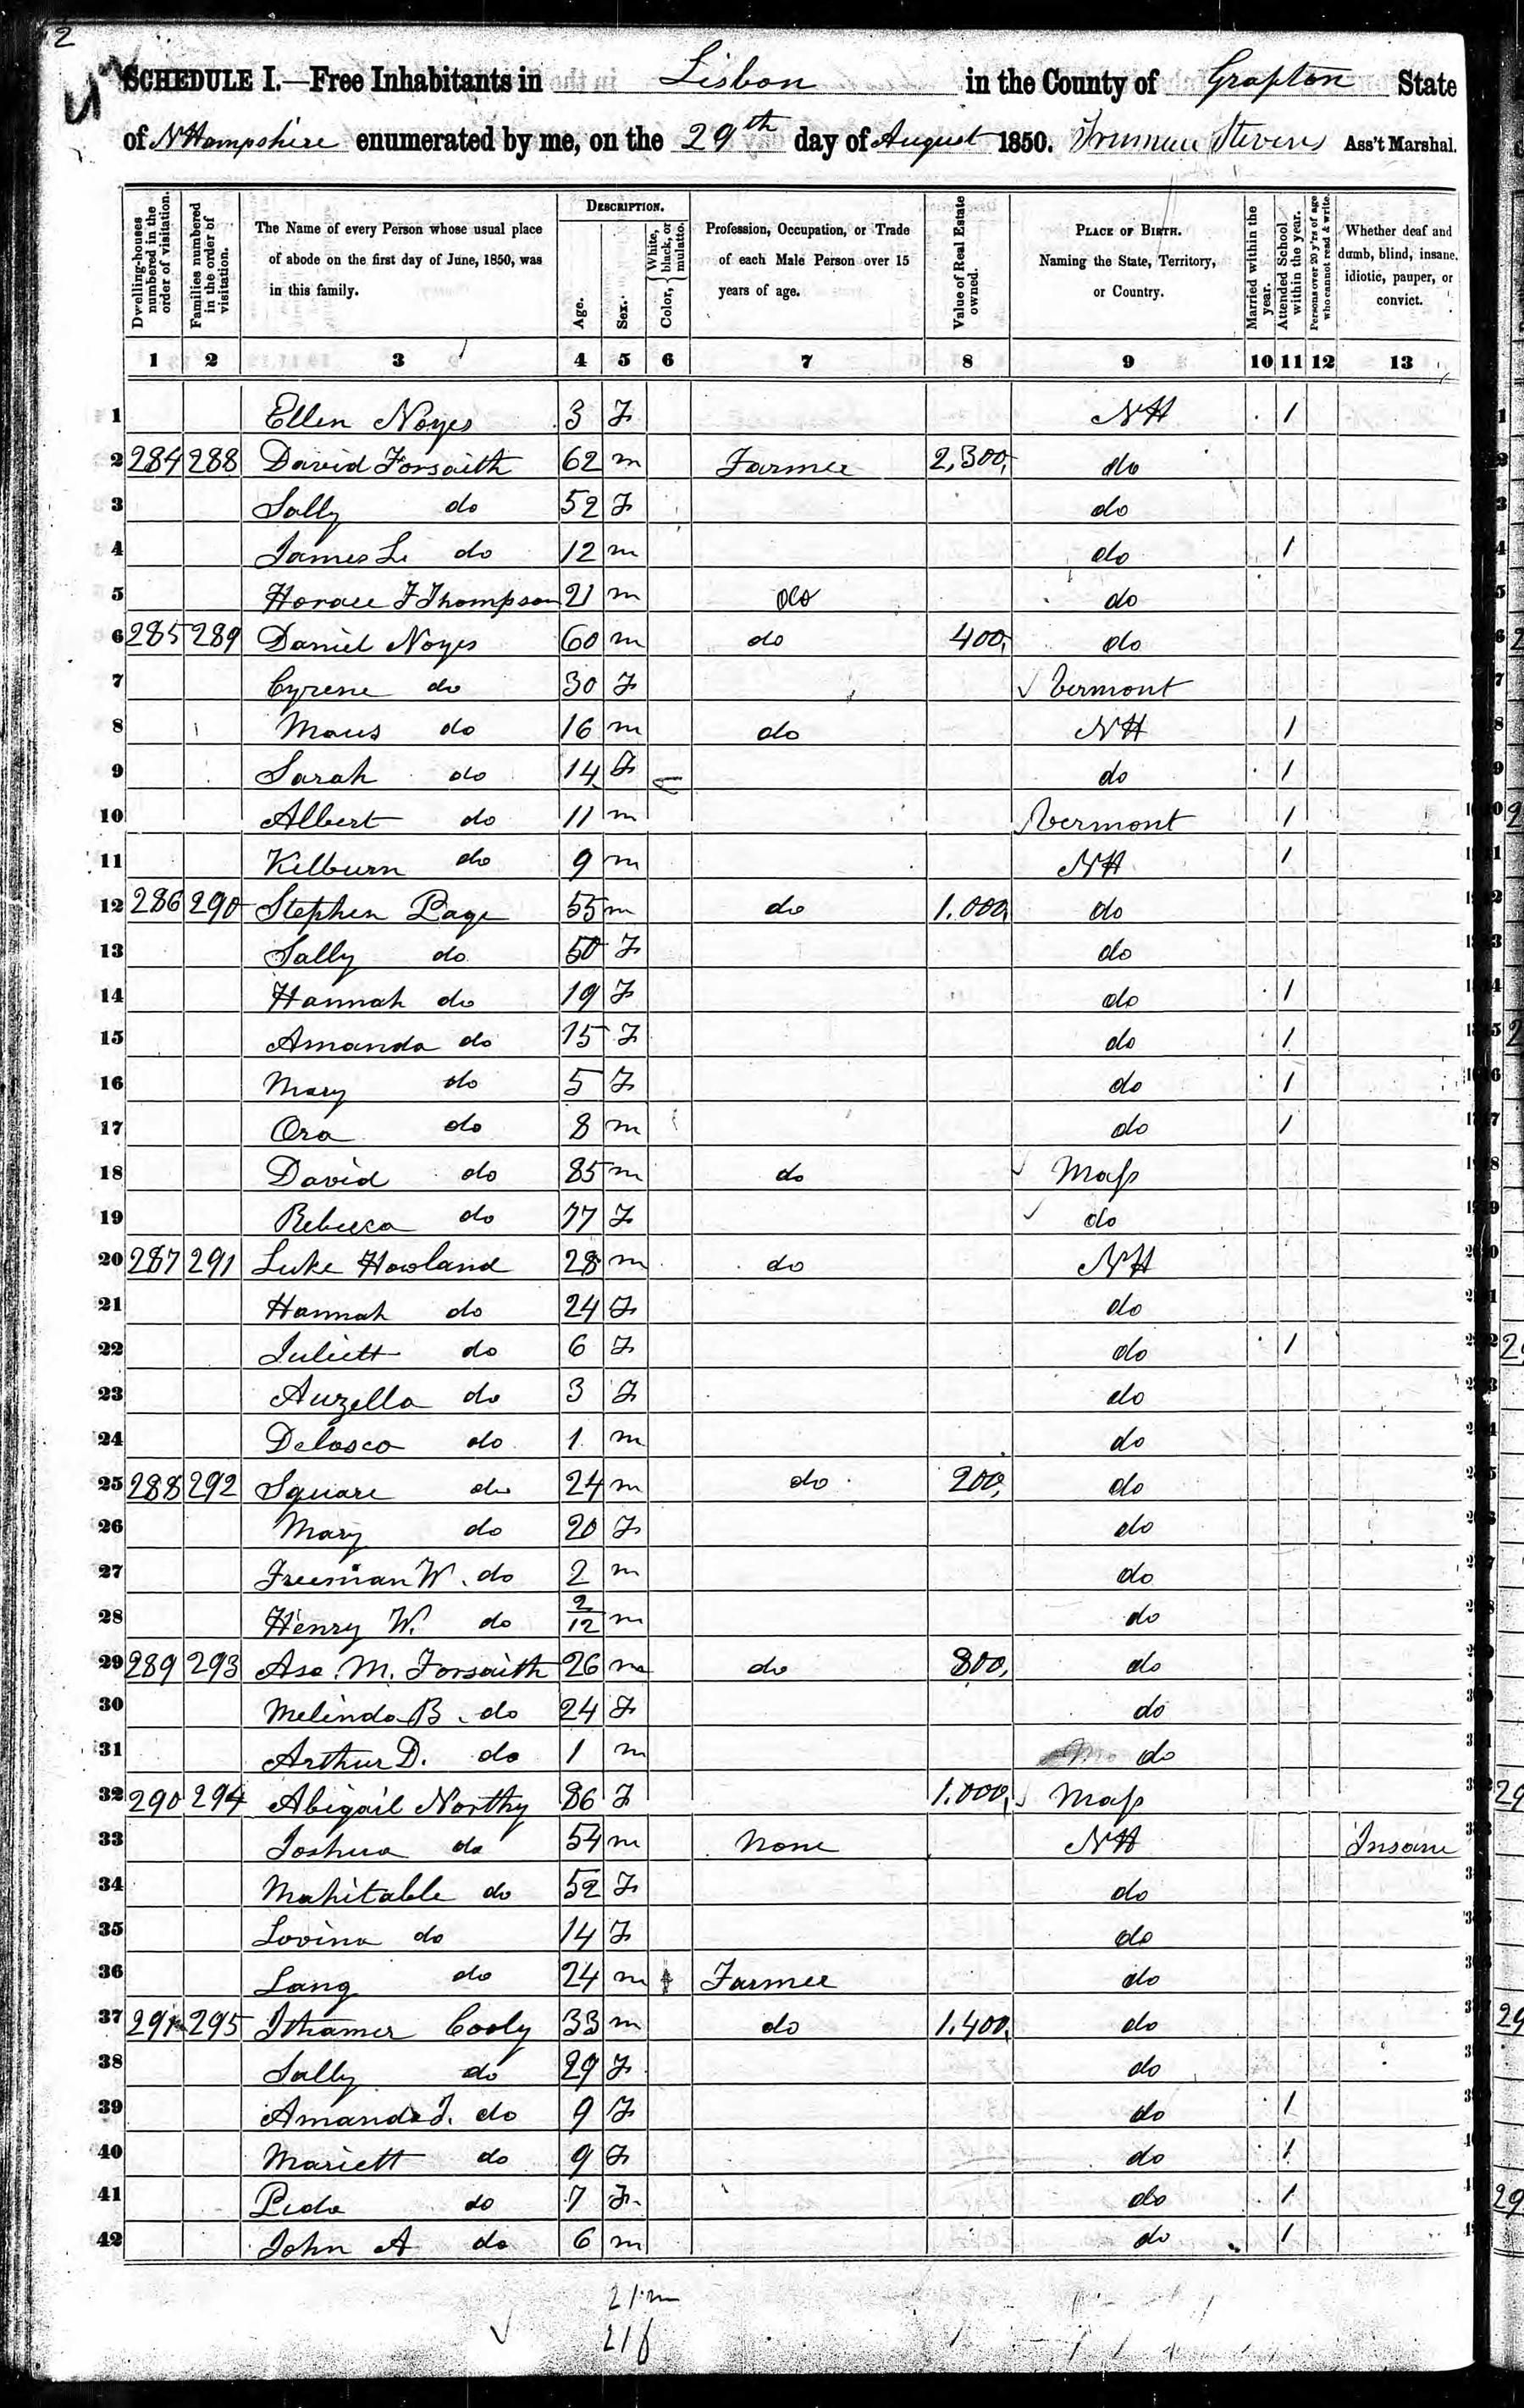 2
SCHEDULE I.—Free Inhabitants in Lisbon in the County of Grafton State
of N Hampshire enumerated by me, on the 29th day of August 1850. Truman Stevens Ass't Marshal.
Dwelling-houses numbered in the order of visitation.
Families numbered in the order of visitation.
The Name of every Person whose usual place of abode on the first day of June, 1850, was in this family.
DESCRIPTION.
Age.
Sex.
Color, White, black, or mulatto.
Profession, Occupation, or Trade of each Male Person over 15 years of age.
Value of Real Estate owned.
PLACE OF BIRTH. Naming the State, Territory, or Country.
Married within the year.
Attended School within the year.
Persons over 20 y'rs of age who cannot read & write.
Whether deaf and dumb, blind, insane, idiotic, pauper, or convict.
1 2 3 4 5 6 7 8 9 10 11 12 13
1 Ellen Noyes 3 F NH 1 1
2 284 288 David Forsaith 62 m Farmer 2,300, do
3 Sally do 52 F do
4 James L. do 12 m do 1
5 Horace F Thompson 21 m do do
6 285 289 Daniel Noyes 60 m do 400, do
7 Cyrene do 30 F Vermont
8 do 16 m do NH 1
9 Sarah do 14 F do 1
10 Albert do 11 m Vermont 1
11 Kilburn do 9 m NH 1
12 286 290 Stephen Page 55 m do 1.000, do
13 Sally do 50 F do
14 Hannah do 19 F do 1
15 Amanda do 15 F do 1
16 Mary do 5 F do 1
17 Ora do 8 m do 1
18 David do 85 m do Mass
19 Rebecca do 77 F do
20 287 291 Luke Howland 28 m do NH
21 Hannah do 24 F do
22 Juliett do 6 F do 1
23 Auzella do 3 F do
24 Delosco do 1 m do
25 288 292 Square do 24 m do 200, do
26 Mary do 20 F do
27 Freeman W. do 2 m do
28 Henry W. do 2/12 m do
29 289 293 Asa. M. Forsaith 26 m do 800, do
30 Melinda B. do 24 F do
31 Arthur D. do 1 m do
32 290 294 Abigail Northy 86 F 1.000, Mass
33 Joshua do 54 m None NH Insane
34 Mahitable do 52 F do
35 Lovina do 14 F do
36 Lang do 24 m Farmer do
37 291 295 Ithamer Cooly 33 m do 1.400, do
38 Sally do 29 F do
39 Amanda J. do 9 F do 1
40 Mariett do 9 F do 1
41 do 7 F do 1
42 John A do 6 m do 1
21 m
21 f